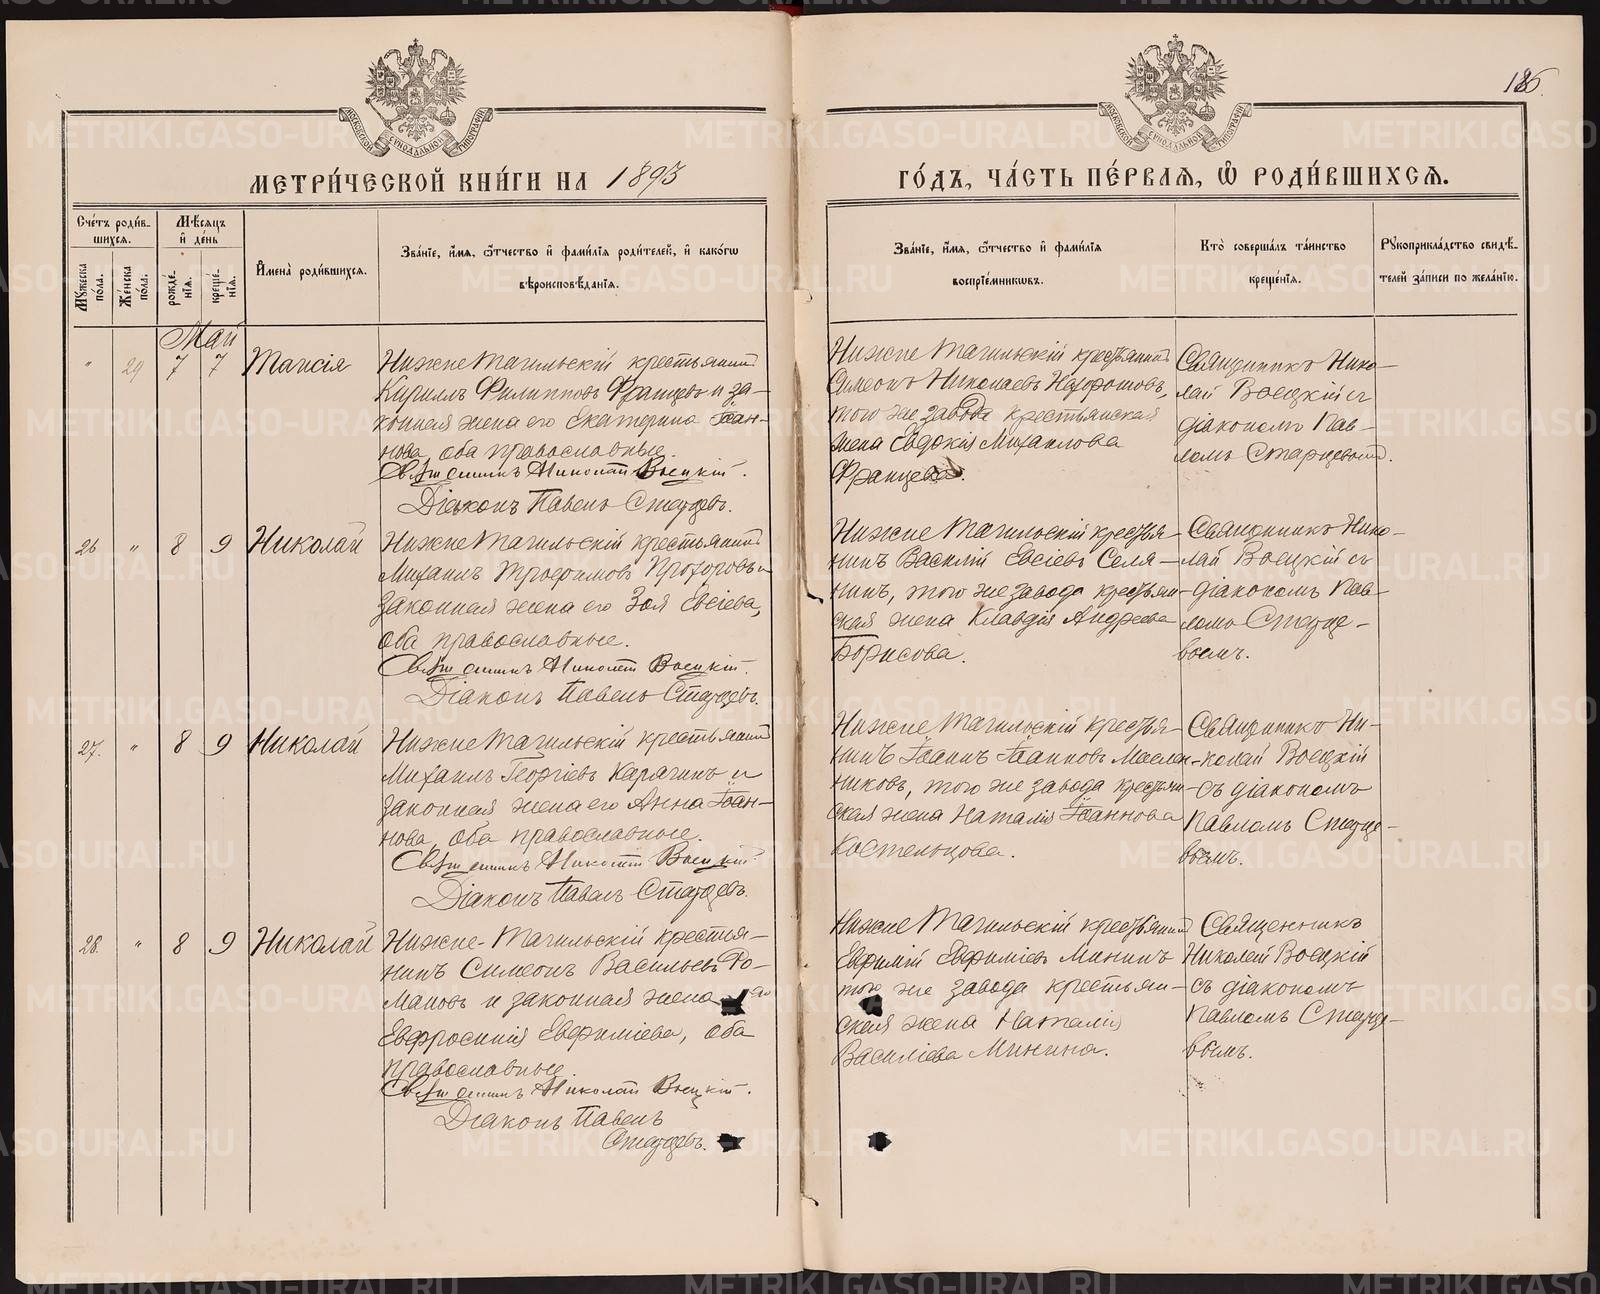 186.
МЕТРИ́ЧЕСКОЙ КНИ́ГИ НА 1893
ГО́ДЪ, ЧА́СТЬ ПЕ́РВАЯ, Ѡ РОДИ́ВШИХСЯ.
Сче́тъ роди́в-
шихся.
Мѣ́сяцъ
и҆ де́нь
И҆мена̀ роди́вшихся.
Зва́нїе, и҆́мя, ѻ҆́тчество и҆ фами́лїя роди́телей, и҆ како́гѡ
вѣроисповѣ́данїя.
Му́жеска
по́ла.
Же́нска
по́ла.
рожде́-
нїя.
креще́-
нїя.
Зва́нїе, и҆́мя, ѻ҆́тчество и҆ фами́лїя
воспрїе́мникѡвъ.
Кто̀ соверша́лъ та́инство
креще́нїя.
Рꙋкоприкла́дство свидѣ́-
телей за́писи по жела́нїю.
Май
" 29 7 7 Таисія
Нижне Тагильскій крестьянинъ
Кириллъ Филипповъ Францевъ и за-
конная жена его Екатерина Іоан-
нова, оба православные.
Священникъ Николай Воецкій.
Діаконъ Павелъ Старцевъ.
Нижне Тагильскій крестьянинъ
Симеонъ Николаевъ
того же завода крестьянская
жена Евдокія Михаилова
Францева.
Священникъ Нико-
лай Воецкій съ
діакономъ Пав-
ломъ Старцевымъ.
26 " 8 9 Николай
Нижне Тагильскій крестьянинъ
Михаилъ Трофимовъ Прохоровъ и
законная жена его Зоя Евсіева,
оба православные.
Священникъ Николай Воецкій.
Діаконъ Павелъ Старцевъ.
Нижне Тагильскій крестья-
нинъ Василій Евсіевъ Селя-
нинъ, того же завода крестьян-
ская жена Клавдія Андреева
Борисова.
Священникъ Нико-
лай Воецкій съ
діакономъ Пав-
ломъ Старце-
вымъ.
27. " 8 9 Николай
Нижне Тагильскій крестьянинъ
Михаилъ Георгіевъ Карагинъ и
законная жена его Анна Іоан-
нова, оба православные.
Священникъ Николай Воецкій.
Діаконъ Павелъ Старцевъ.
Нижне Тагильскій крестья-
нинъ Іоаннъ Іоанновъ Маслен-
никовъ, того же завода крестьян-
ская жена Наталія Іоаннова
Костельцова.
Священникъ Ни-
колай Воецкій
съ діакономъ
Павломъ Старце-
вымъ.
28. " 8 9 Николай
Нижне-Тагильскій крестья-
нинъ Симеонъ Васильевъ Ро-
мановъ и законная жена его
Евфросинія Евфиміева, оба
православные.
Священникъ Николай Воецкій.
Діаконъ Павелъ
Старцевъ.
Нижне Тагильскій крестьянинъ
Евфимій Евфиміевъ Мининъ
того же завода крестьян-
ская жена Наталія
Василіева Минина.
Священникъ
Николай Воецкій
съ діакономъ
Павломъ Старце-
вымъ.
METRIKI.GASO-URAL.RU